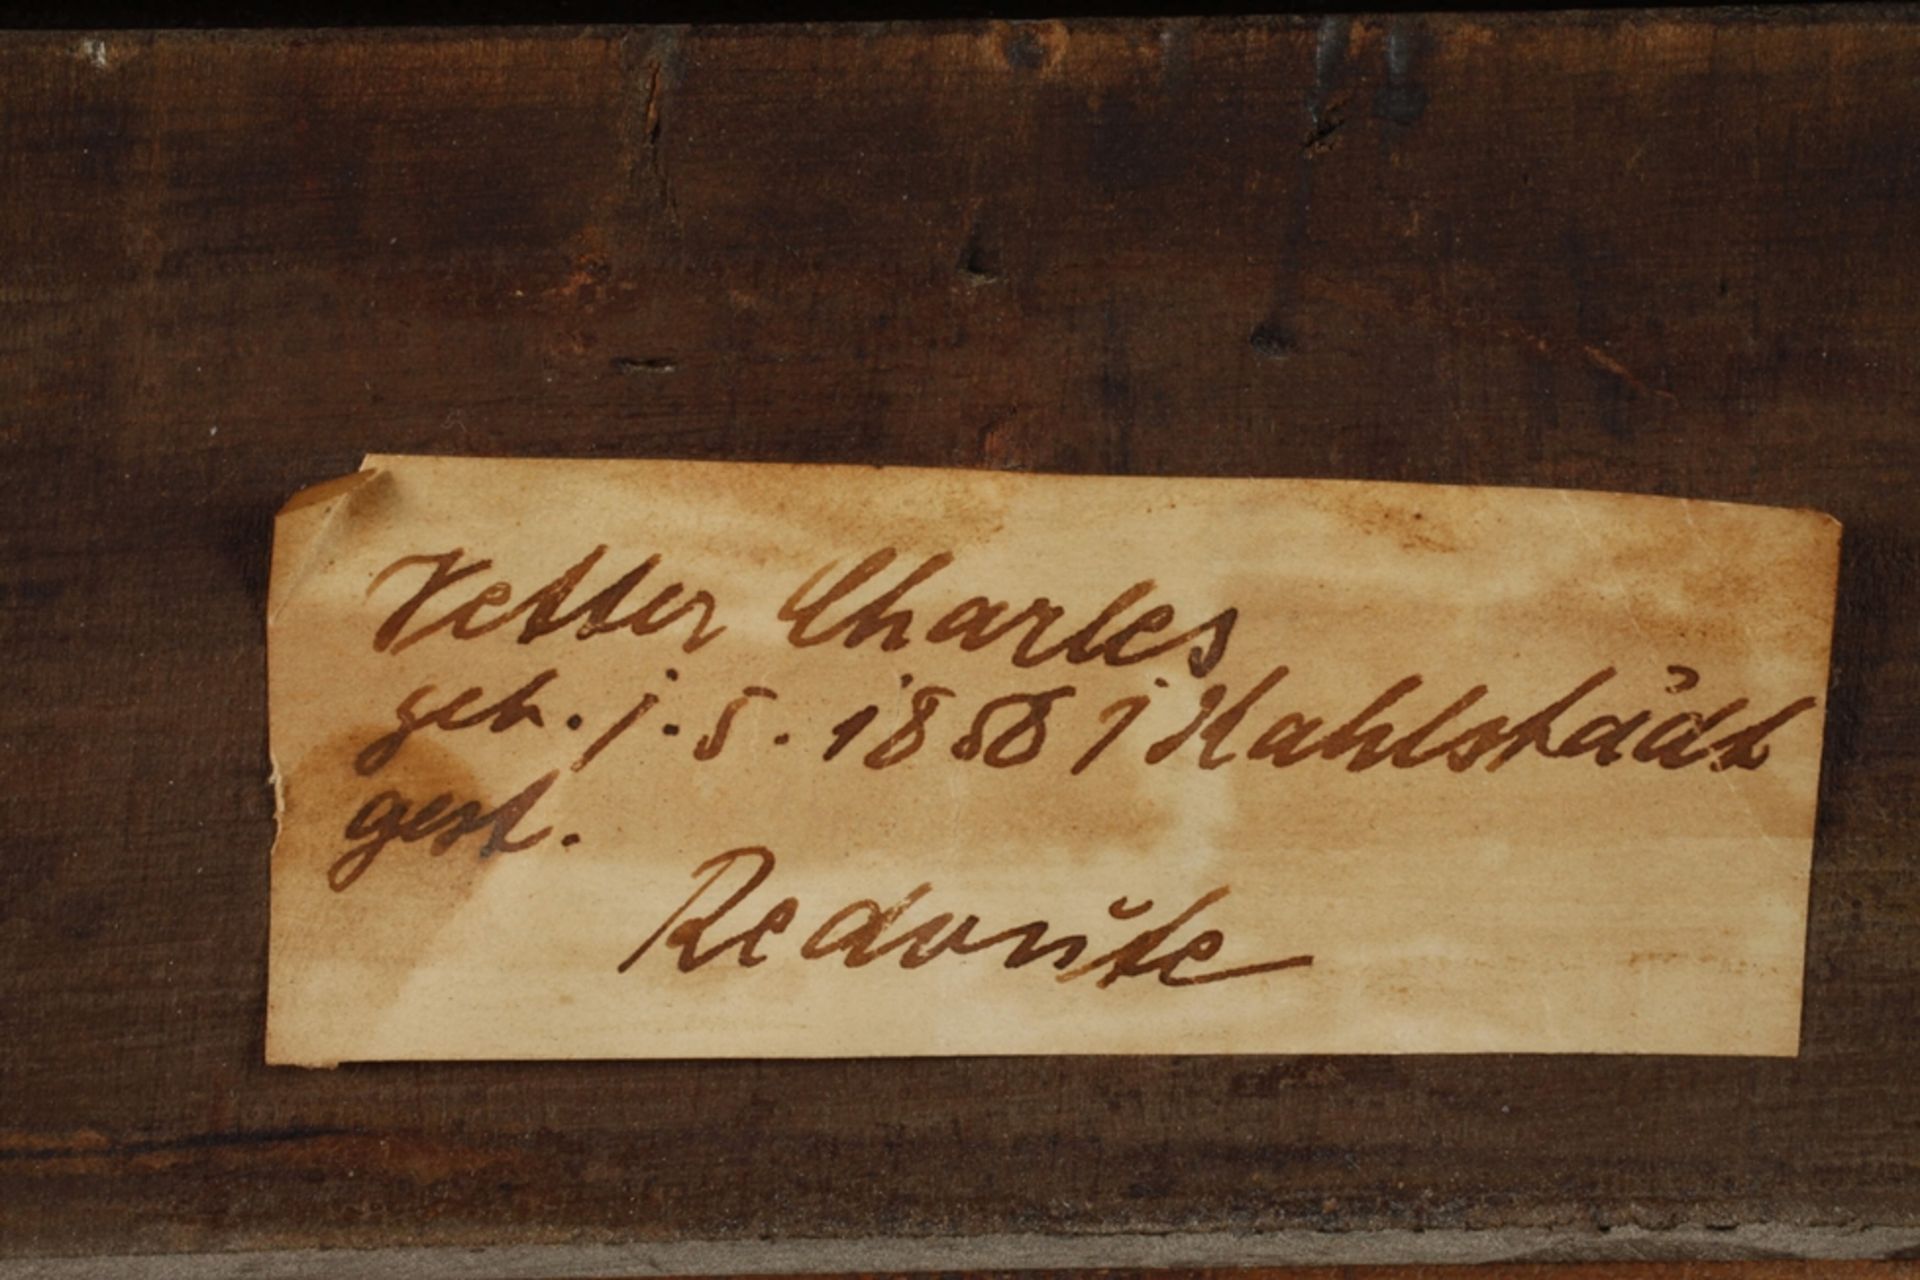 Vetter Charles
geb. 1.5.1858 j Kahlstädt
gest.
Redoute